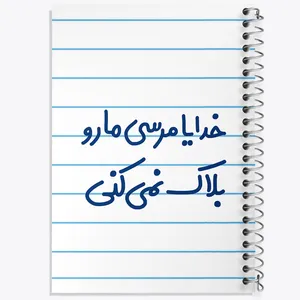 خدایا مرسی مارو
بلاک نمی کنی